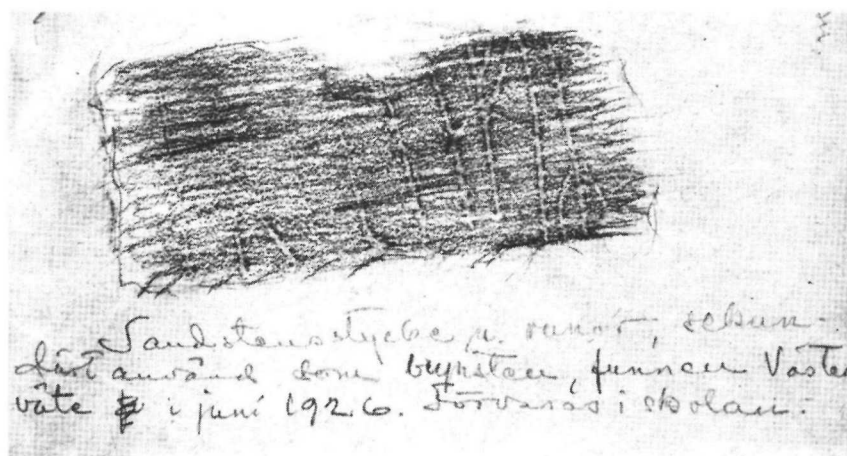 Sandstensstycke m. runor, sekun-
därt använd som brynsten, funnen Väste
väte i juni 1926. Förvaras i skolan.